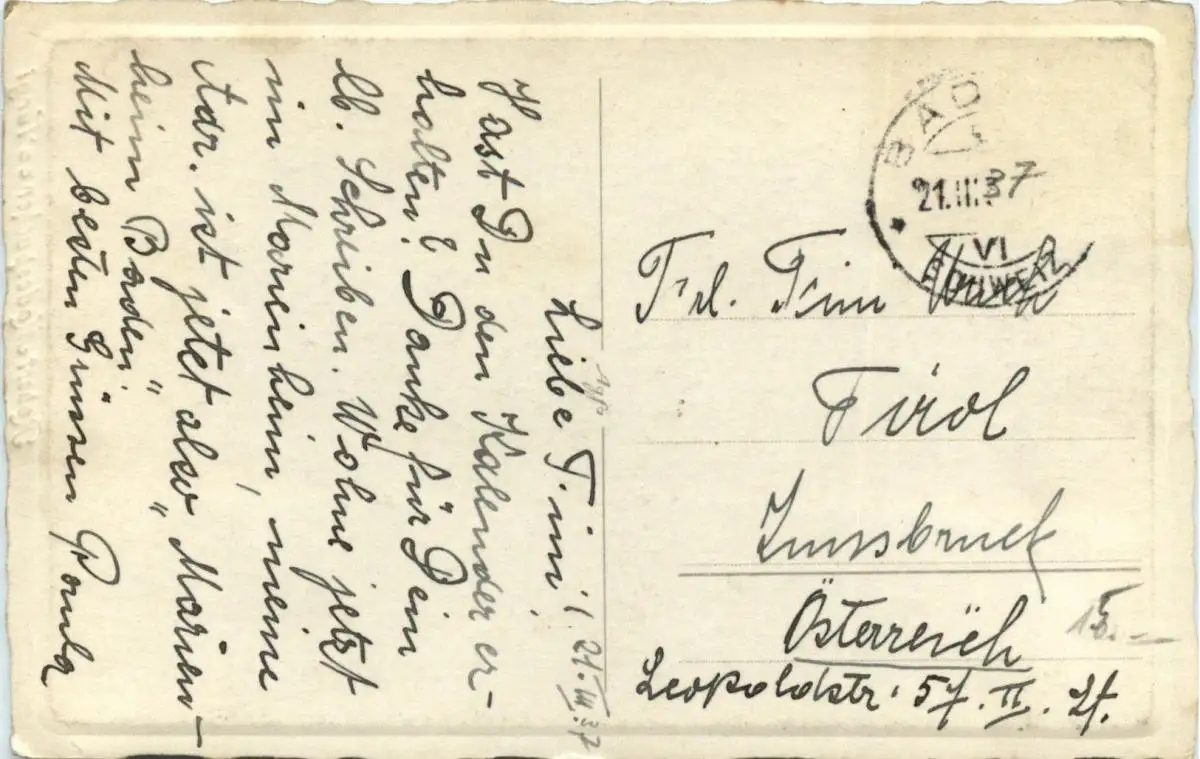 Liebe Timi!
21.III.37
Hast Du den Kalender er-
halten? Danke für Dein
lb. Schreiben. Wohne jetzt
im Marienheim, meine
Adr. ist jetzt also „Marien-
heim Baden"
Mit besten Grüssen Paula
BADEN
21.III.37
VI
Frl. Timi
Tirol
Innsbruck
Österreich
15.—
Leopoldstr. 57. II. St.